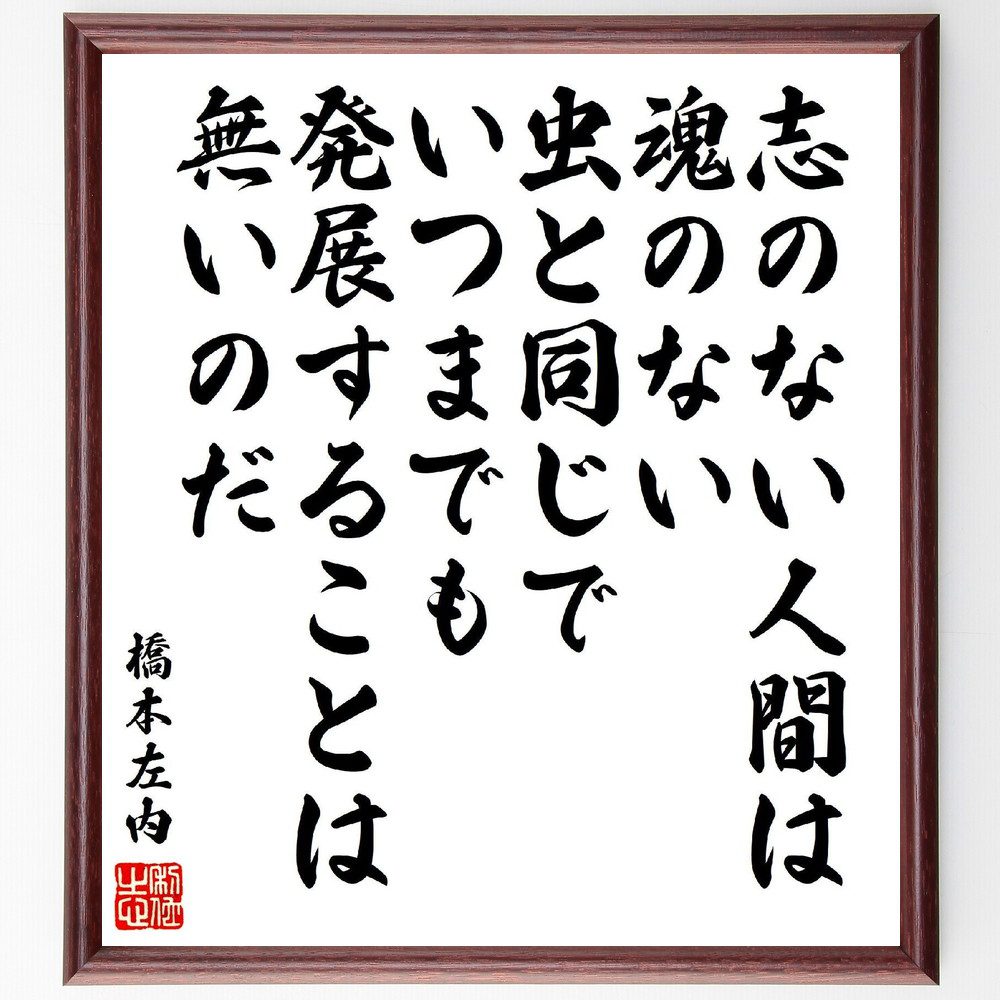 志のない人間は
魂のない
虫と同じで
いつまでも
発展することは
無いのだ
橋本左内